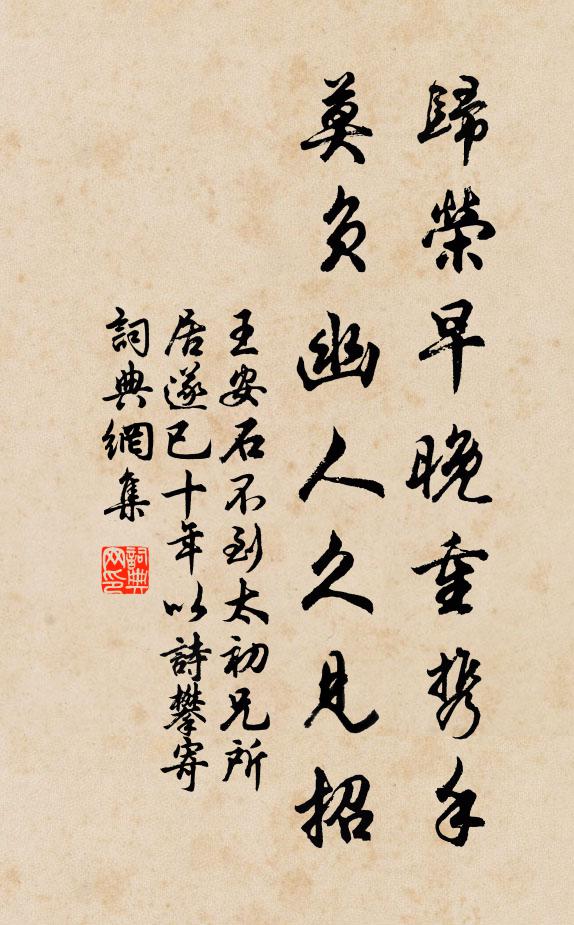 歸榮早晚重携手
莫負幽人久見招
王安石不到太初兄所
居遂已十年以詩攀寄
詞典網集
詞典
网印